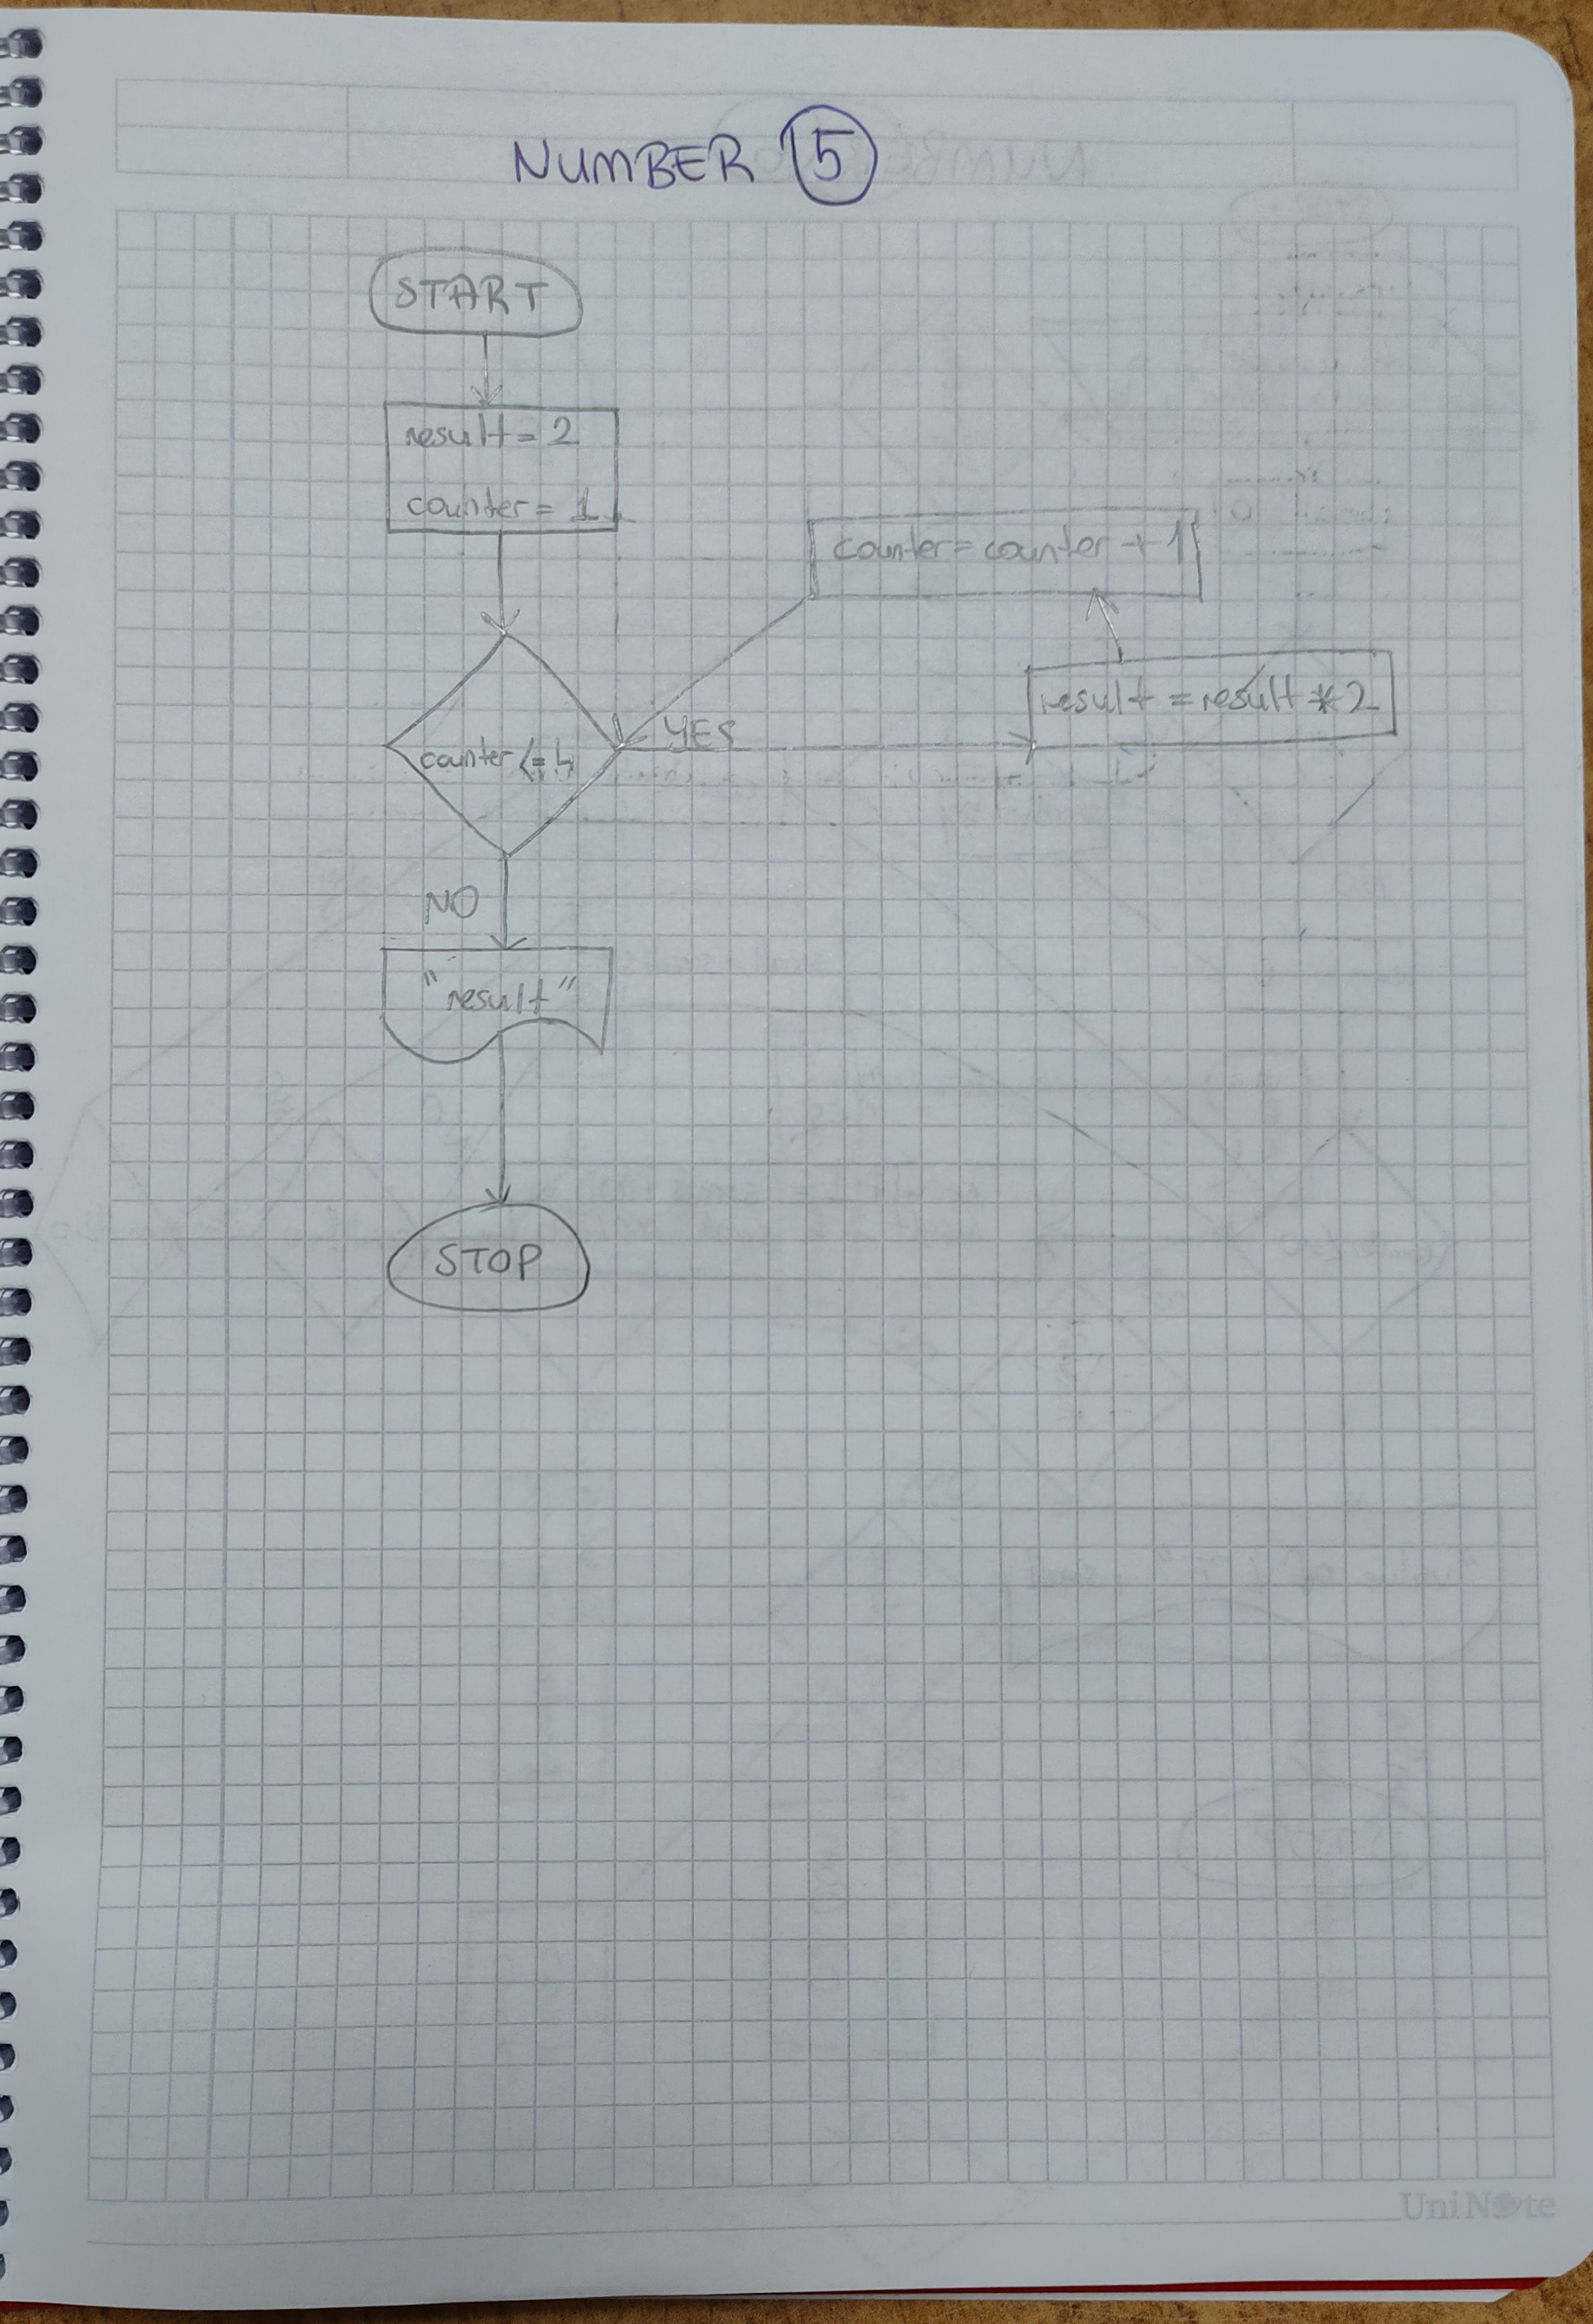 NUMBER 5
START
result = 2
counter = 1
counter = counter + 1
result = result * 2
YES
counter <= 4
NO
"result"
STOP
UniNote